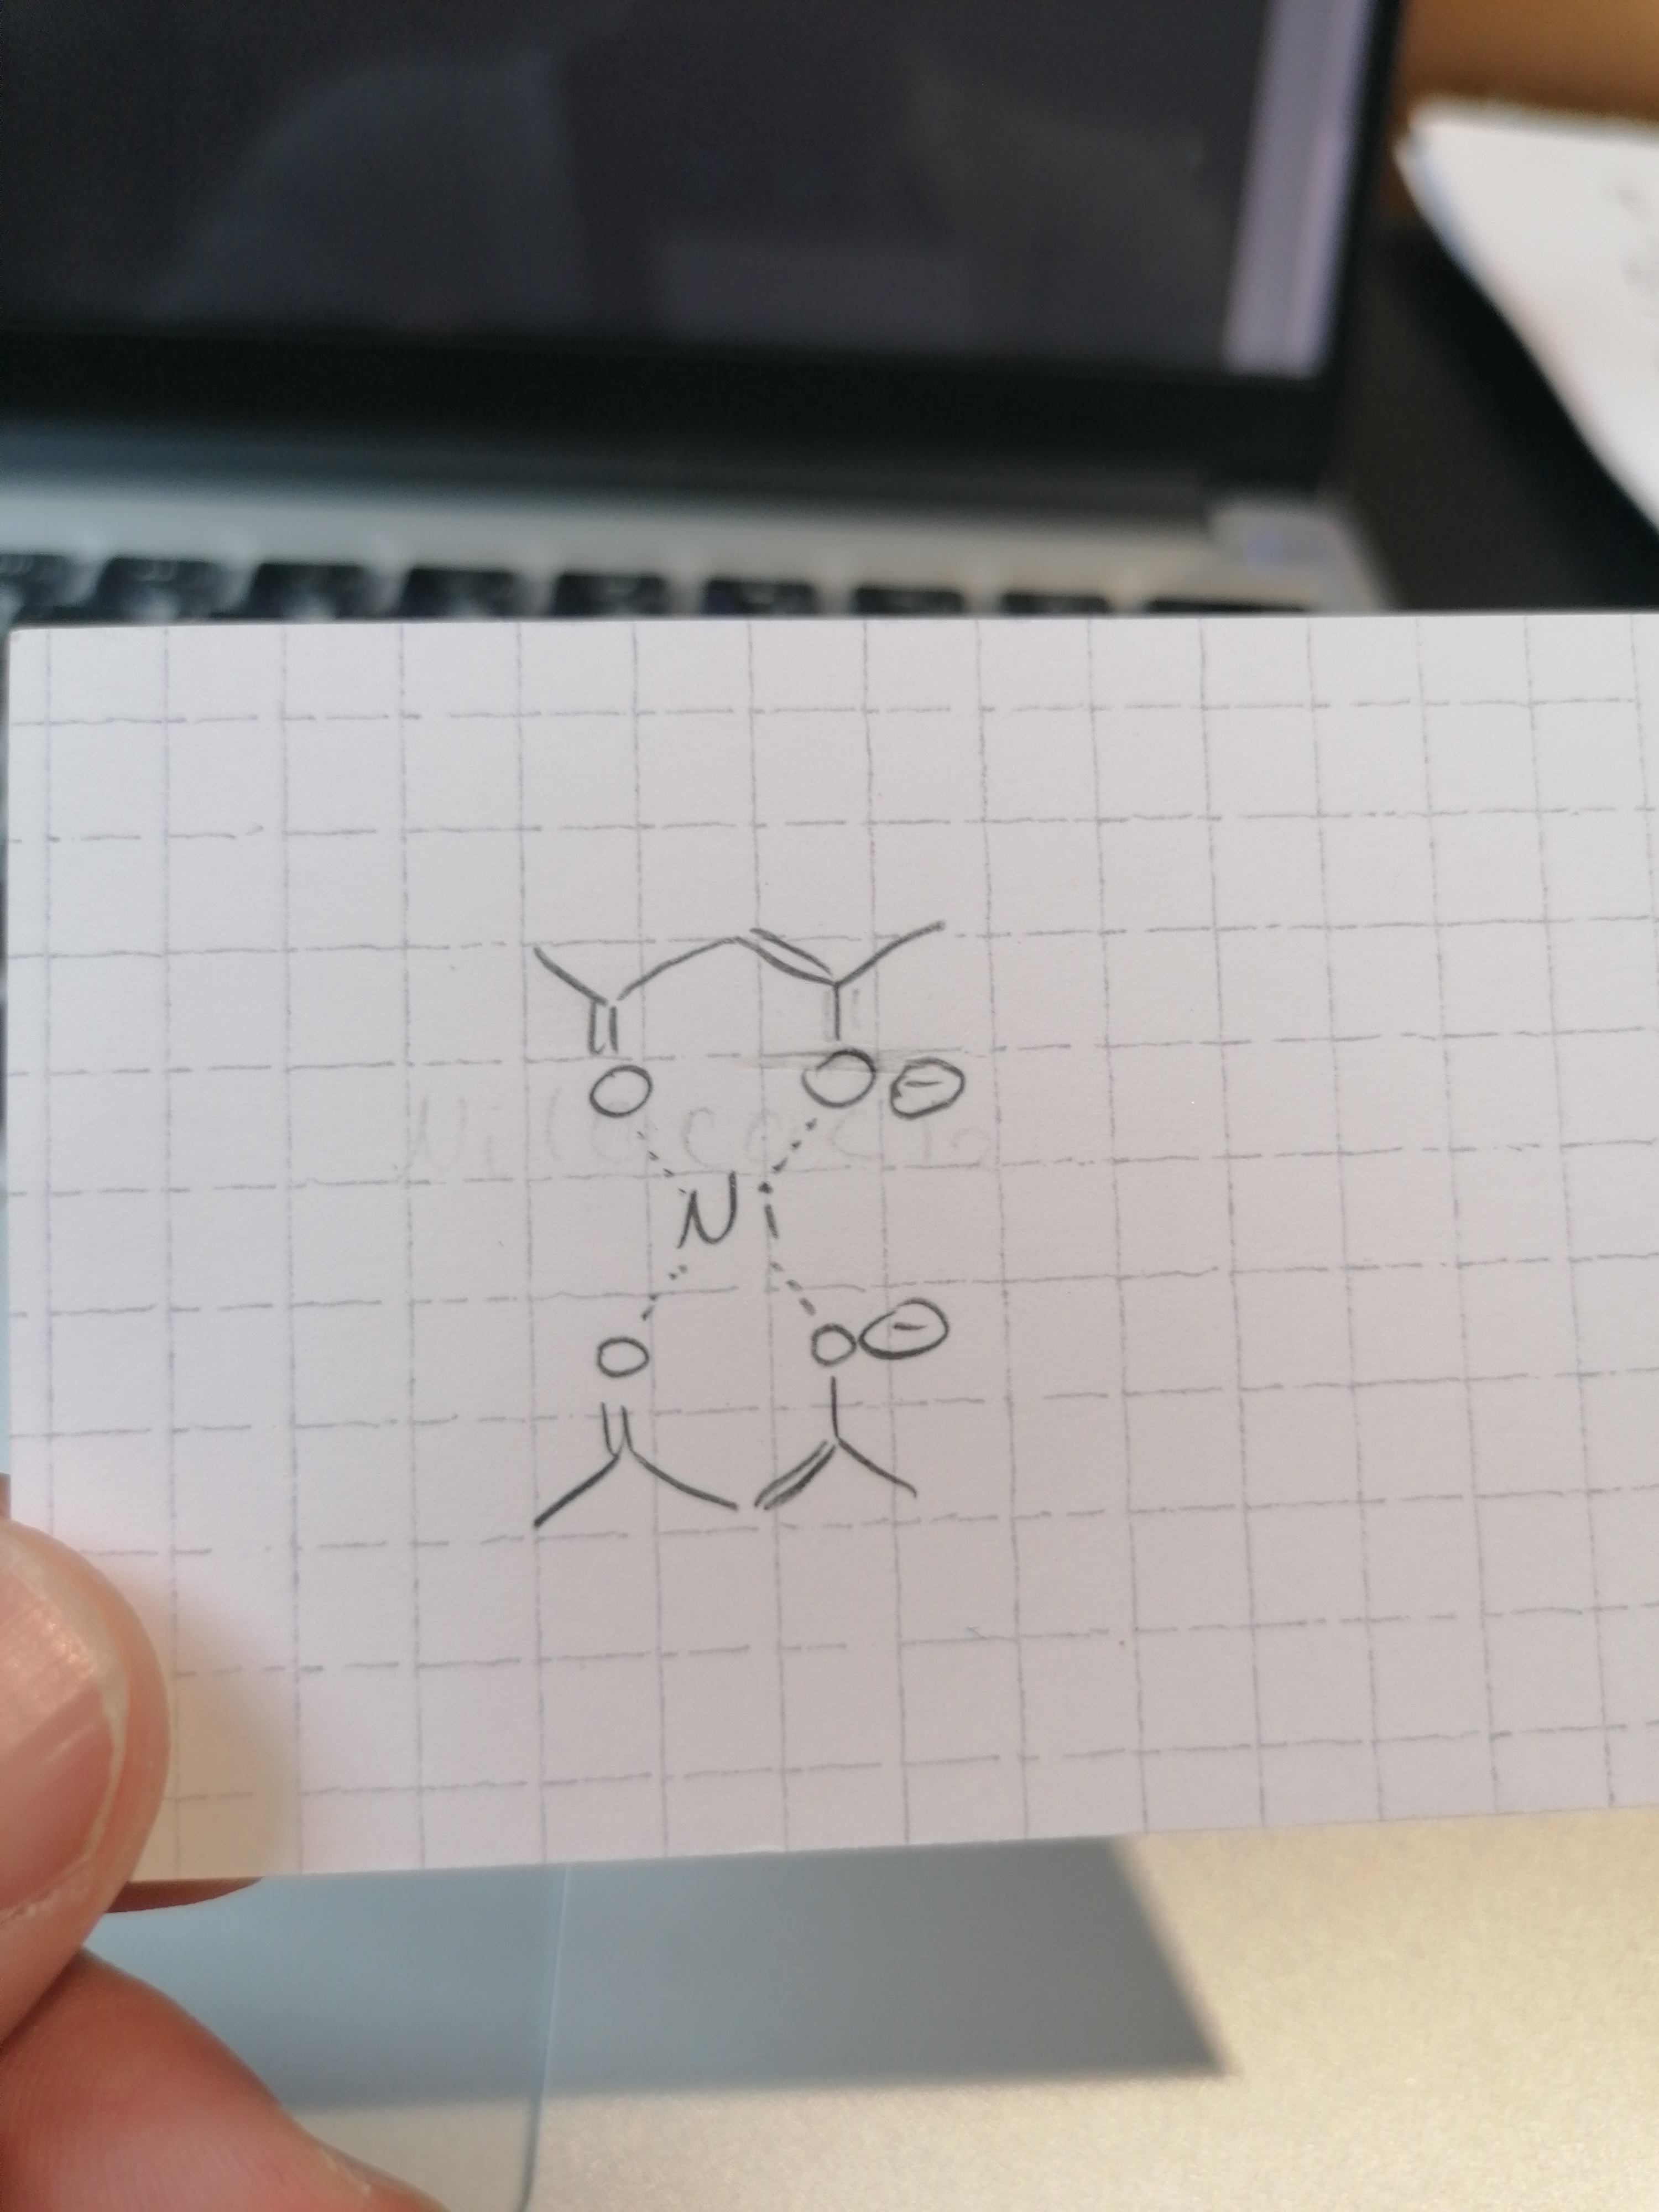 O O ⊖
Ni
O O ⊖